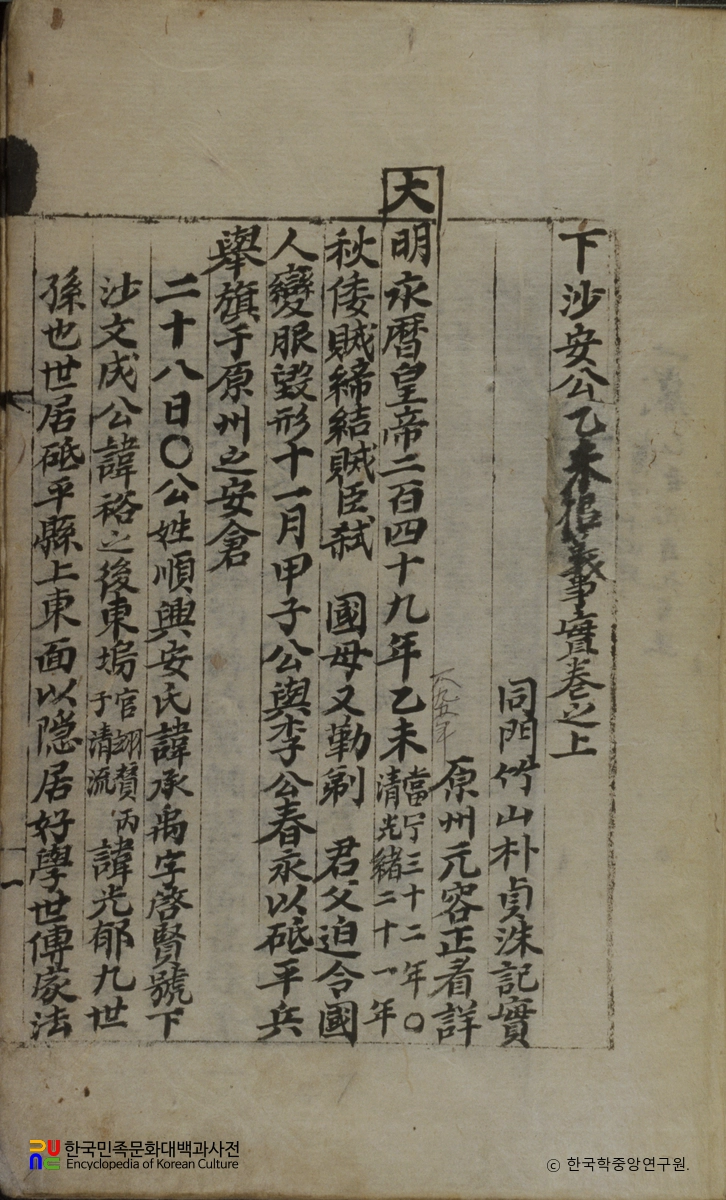 下沙安公乙未倡義事實卷之上
同門竹山朴貞洙記實
原州元容正看詳
大
明永曆皇帝二百四十九年乙未當宁三十二年○清光緒二十一年
一八九五年
秋倭賊締結賊臣弑 國母又勒剃 君父迫令國
人變服毀形十一月甲子公與李公春永以砥平兵
擧旗于原州之安倉
二十八日○公姓順興安氏諱承禹字啓賢號下
沙文成公諱裕之後東塢官翊贊丙子清流諱光郁九世
孫也世居砥平縣上東面以隱居好學世傳家法
一
한국민족문화대백과사전
Encyclopedia of Korean Culture
ⓒ 한국학중앙연구원.